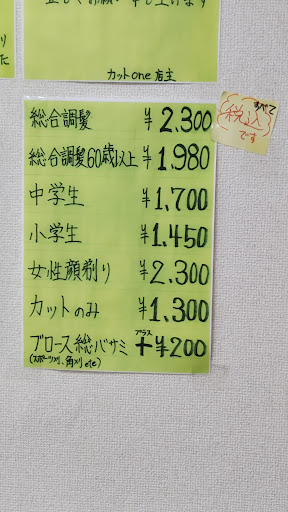 り
た
正しくお願い申し上げます
カットone 店主
総合調髪 ¥2,300
すべて
税込
です
総合調髪60歳以上 ¥1,980
中学生 ¥1,700
小学生 ¥1,450
女性顔剃り ¥2,300
カットのみ ¥1,300
プラス
ブロース総バサミ +¥200
(スポーツ刈、角刈etc)